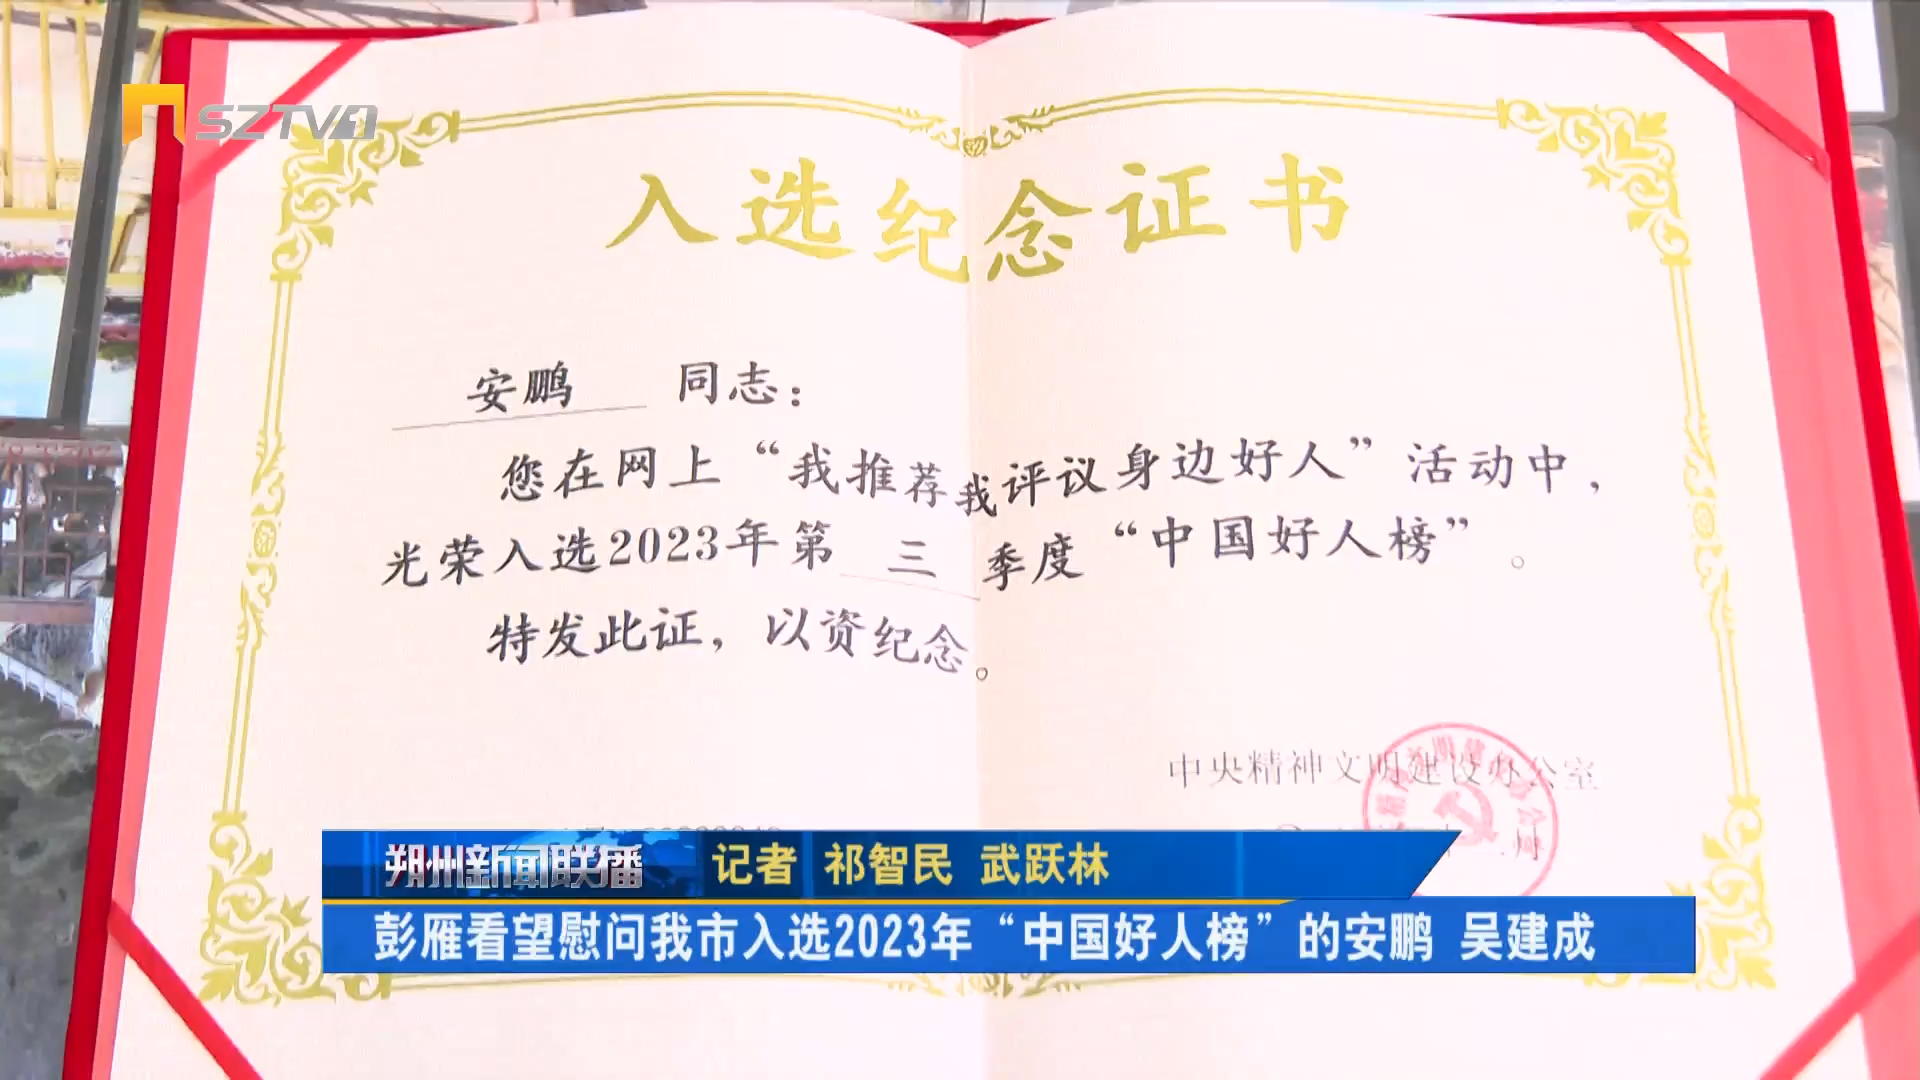 SZTV1
入选纪念证书
安鹏 同志：
您在网上“我推荐我评议身边好人”活动中，
光荣入选2023年第 三 季度“中国好人榜”。
特发此证，以资纪念。
中央精神文明建设办公室
朔州新闻联播 记者 祁智民 武跃林
彭雁看望慰问我市入选2023年“中国好人榜”的安鹏 吴建成